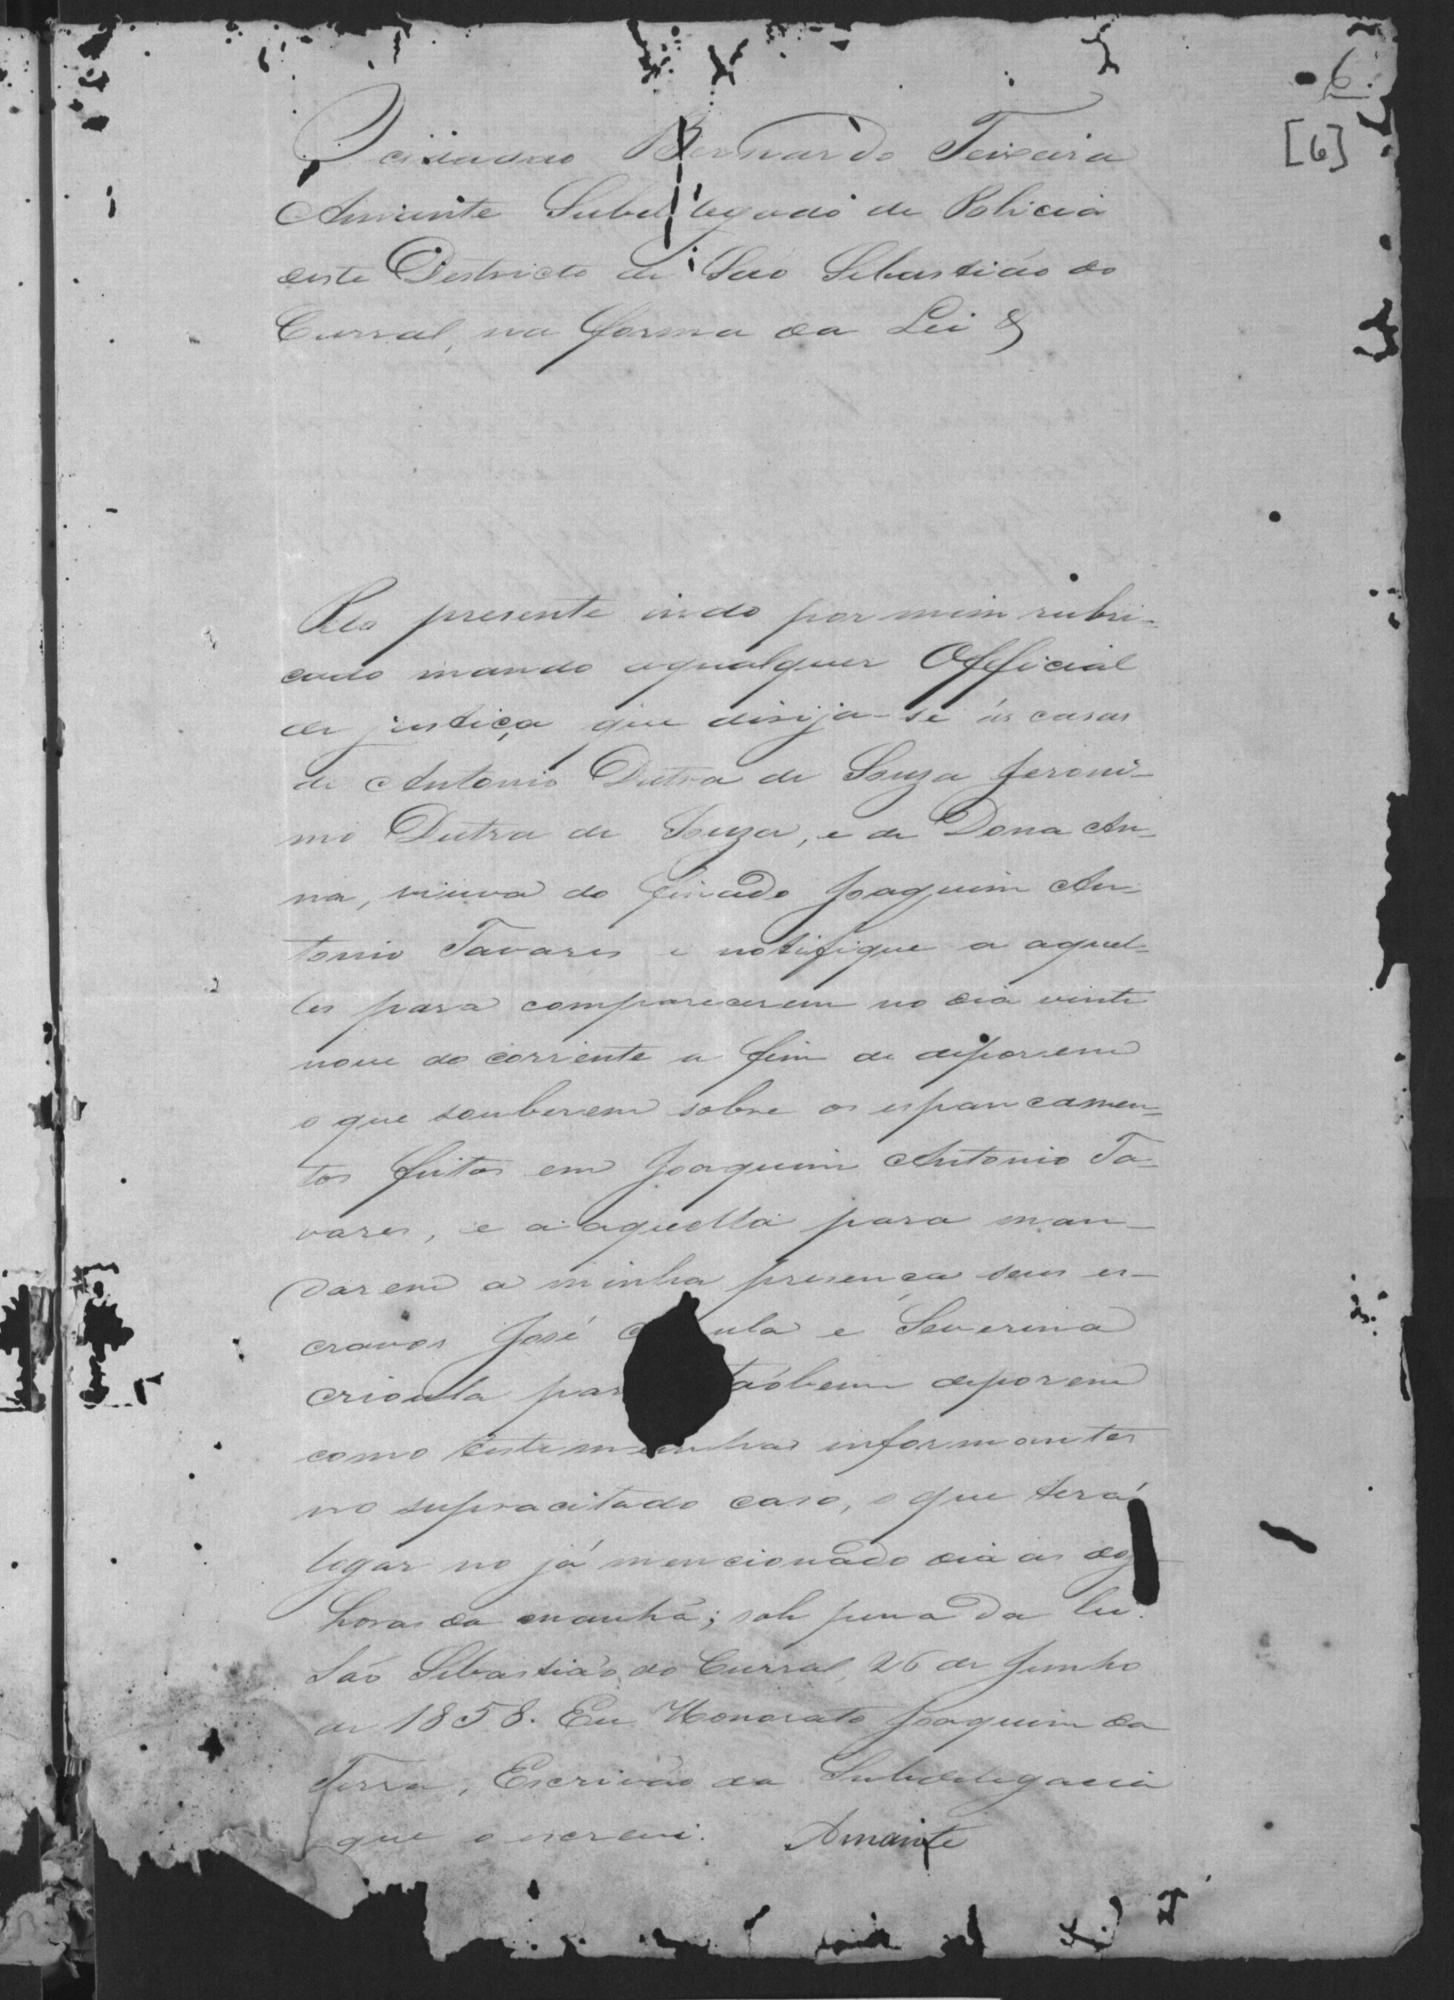 6
[6]
O cidadao Bernardo Teixeira
Amante Subdelegado de Policia
deste Destricto de São Sebastião do
Curral, na forma da Lei &
Pelo presente indo por mim rubri-
cado mando aqualquer Official
de justiça que dirija-se ás casas
de Antonio Dutra de Souza Jeroni-
mo Dutra de Souza, e de Dona An-
na, viuva do finado Joaquim An-
tonio Tavares e notifique a aquel-
les para comparecerem no dia vinte
nove do corrente a fim de deporem
o que souberem sobre os espancamen-
tos feitos em Joaquim Antonio Ta-
vares, e a aquella para man-
darem a minha presença seus es-
cravos José e Severina
crioula para tãobem deporem
como testemunhas informantes
no supracitado caso, o que terá
lugar no já mencionado dia as
horas da manhã; sob pena da lei.
São Sebastião do Curral, 26 de Junho
de 1858. Eu Honorato Joaquim da
Terra, Escrivão da Subdelegacia
que o escrevi. Amante